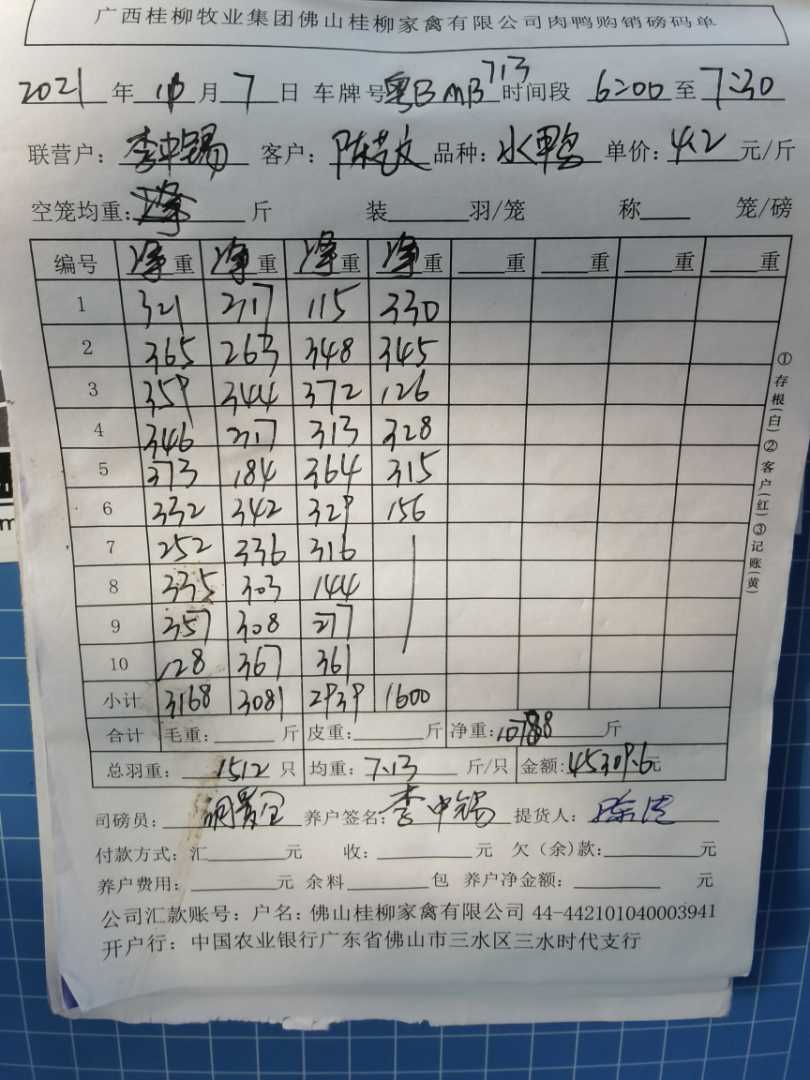 广西桂柳牧业集团佛山桂柳家禽有限公司肉鸭购销磅码单
2021 年 10 月 7 日 车牌号 粤B mB713 时间段 6:00 至 7:30
联营户: 李中锡 客户: 陈 品种: 水鸭 单价: 4.2 元/斤
空笼均重: 斤 装 羽/笼 称 笼/磅
编号 净重 净重 净重 净重 重 重 重 重
1 321 217 115 330
2 365 263 348 345
3 359 344 372 126
4 346 217 313 328
5 373 184 364 315
6 332 342 329 156
7 252 336 316
8 335 303 144
9 357 308 277
10 128 367 361
小计 3168 3081 2939 1600
合计 毛重: 斤 皮重: 斤 净重: 10788 斤
总羽重: 1512 只 均重: 7.13 斤/只 金额: 45309.6元
司磅员: 养户签名: 李中锡 提货人:
付款方式: 汇 元 收: 元 欠(余)款: 元
养户费用: 元 余料 包 养户净金额: 元
公司汇款账号: 户名: 佛山桂柳家禽有限公司 44-442101040003941
开户行: 中国农业银行广东省佛山市三水区三水时代支行
①存根(白)②客户(红)③记账(黄)